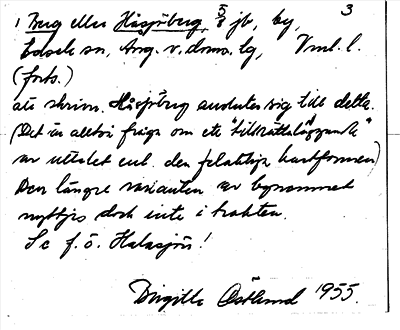 3
1 Berg eller Håsjöberg, 5/8 jb, by,
Edsele sn, Ång. v. doms. lg, Vml. l.
(forts.)
als skrivn. Håsjöberg ansluter sig till detta.
(Det är alltså fråga om ett "tillrättaläggande"
av uttalet enl. den felaktiga kartformen)
Den längre varianten av bynamnet
nyttjas dock inte i trakten.
Se f.ö. Halasjön!
Birgitta Östlund 1955.